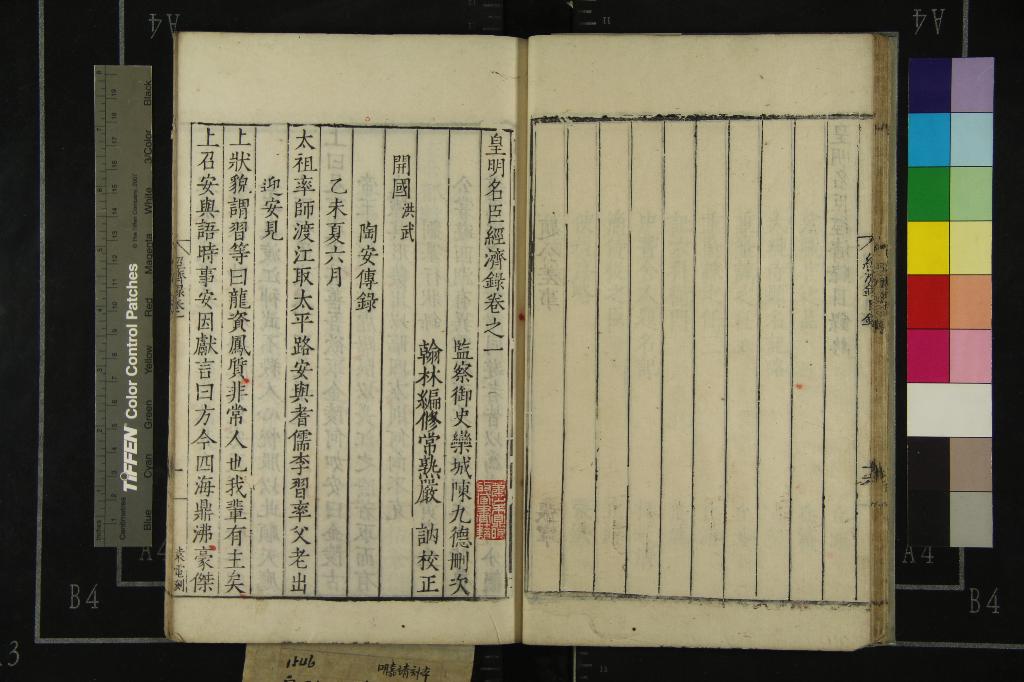 皇明名臣經濟錄卷之一
監察御史欒城陳九德刪次
翰林編修常熟嚴 訥校正
開國洪武
陶安傳錄
乙未夏六月
太祖率師渡江取太平路安與耆儒李習率父老出
迎安見
上狀貌謂習等曰龍資鳳質非常人也我輩有主矣
上召安與語時事安因獻言曰方今四海鼎沸豪傑
TIFFEN Color Control Patches
© The Tiffen Company, 2007
Blue
Cyan
Green
Yellow
Red
Magenta
White
3/Color
Black
Inches
Centimetres
A4
A4
A4
A4
B4
B4
1546